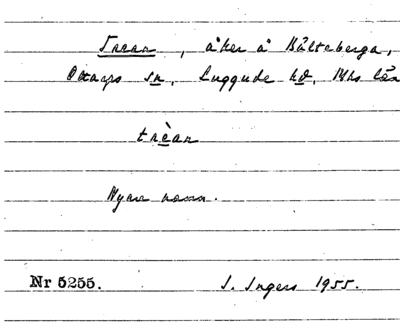 Trean, åker å Bälteberga,
Ottarps sn, Luggude hd, Mhs län
trèan
Nyare namn.
Nr 5255. I. Ingers 1955.